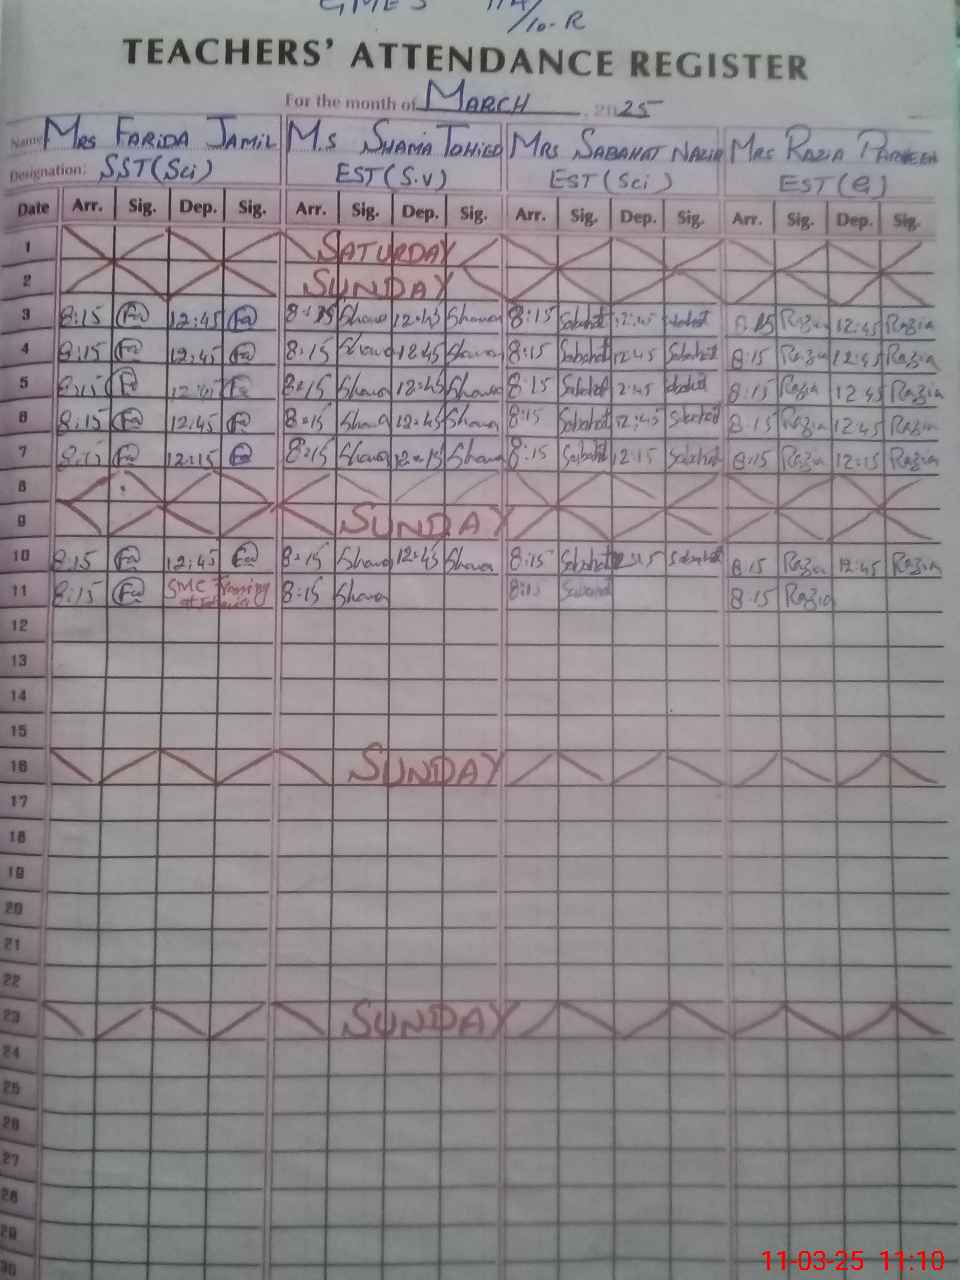 GMES 114/10-R
TEACHERS' ATTENDANCE REGISTER
For the month of MARCH, 2025
Name MRS FARIDA JAMIL M.S SHAMA TOHEED MRS SABAHAT NAZIR MRS RAZIA PARVEEN
Designation: SST(Sci) EST(S.V) EST(Sci) EST(E)
Date Arr. Sig. Dep. Sig. Arr. Sig. Dep. Sig. Arr. Sig. Dep. Sig. Arr. Sig. Dep. Sig.
1 SATURDAY
2 SUNDAY
3 8:15 Fa 12:45 Fa 8:15 Shama 12:45 Shama 8:15 Sabahat 12:45 Sabahat 8:15 Razia 12:45 Razia
4 8:15 Fa 12:45 Fa 8:15 Shama 12:45 Shama 8:15 Sabahat 12:45 Sabahat 8:15 Razia 12:45 Razia
5 8:15 Fa 12:45 Fa 8:15 Shama 12:45 Shama 8:15 Sabahat 12:45 Sabahat 8:15 Razia 12:45 Razia
6 8:15 Fa 12:45 Fa 8:15 Shama 12:45 Shama 8:15 Sabahat 12:45 Sabahat 8:15 Razia 12:45 Razia
7 8:15 Fa 12:15 Fa 8:15 Shama 12:15 Shama 8:15 Sabahat 12:15 Sabahat 8:15 Razia 12:15 Razia
8
9 SUNDAY
10 8:15 Fa 12:45 Fa 8:15 Shama 12:45 Shama 8:15 Sabahat 12:45 Sabahat 8:15 Razia 12:45 Razia
11 8:15 Fa SMC Training at 8:15 Shama 8:15 Sabahat 8:15 Razia
12
13
14
15
16 SUNDAY
17
18
19
20
21
22
23 SUNDAY
24
25
26
27
28
29
30
11-03-25 11:10